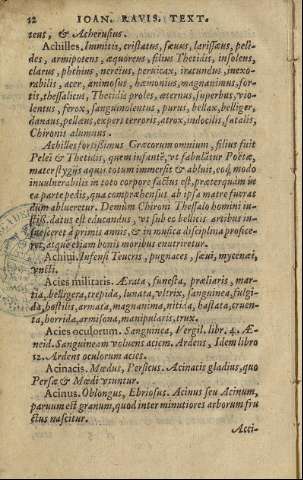 12 IOAN. RAVIS. TEXT.
tens, & Acherusius.
Achilles, Immitis, cristatus, sæuus, larissæus, peli-
des, armipotens, æquoreus, filius Thetidis, insolens,
clarus, phthius, nereius, peruicax, iracundus, inexo-
rabilis, acer, animosus, hæmonius, magnanimus, for-
tis, thessalicus, Thetidis proles, æternus, superbus, vio-
lentus, ferox, sanguinolentus, purus, bellax, belliger,
danaus, pellæus, expers terroris, atrox, indocilis, fatalis,
Chironis alumnus.
Achilles fortissimus Græcorum omnium, filius fuit
Pelei & Thetidis, quem infantē, vt fabulātur Poëtæ,
mater stygijs aquis totum immersit & abluit, eoq́; modo
inuulnerabilis in toto corpore factus est, præterquam in
ea parte pedis, qua comprehensus ab ipsa matre fuerat
dum ablueretur. Demùm Chironi Thessalo homini iu-
stiss. datus est educandus, vt sub eo bellicis artibus in-
suesceret à primis annis, & in musica disciplina profice-
ret, atque etiam bonis moribus enutriretur.
Achiui. Infensi Teucris, pugnaces, sæui, mycenæi,
vncti.
Acies militaris. Ærata, funesta, præliaris, mar-
tia, belligera, trepida, lunata, vltrix, sanguinea, fulgi-
da, hostilis, armata, magnanima, nitida, hastata, cruen-
ta, horrida, armisona, manipularis, trux.
Acies oculorum. Sanguinea, Vergil. libr. 4. Æ-
neid. Sanguineam voluens aciem. Ardens, Idem libro
12. Ardens oculorum acies.
Acinacis. Mœdus, Persicus. Acinacis gladius, quo
Persæ & Mœdi vtuntur.
Acinus. Oblongus, Ebriosus. Acinus seu Acinum,
paruum est granum, quod inter minutiores arborum fru
ctus nascitur.
Acci-